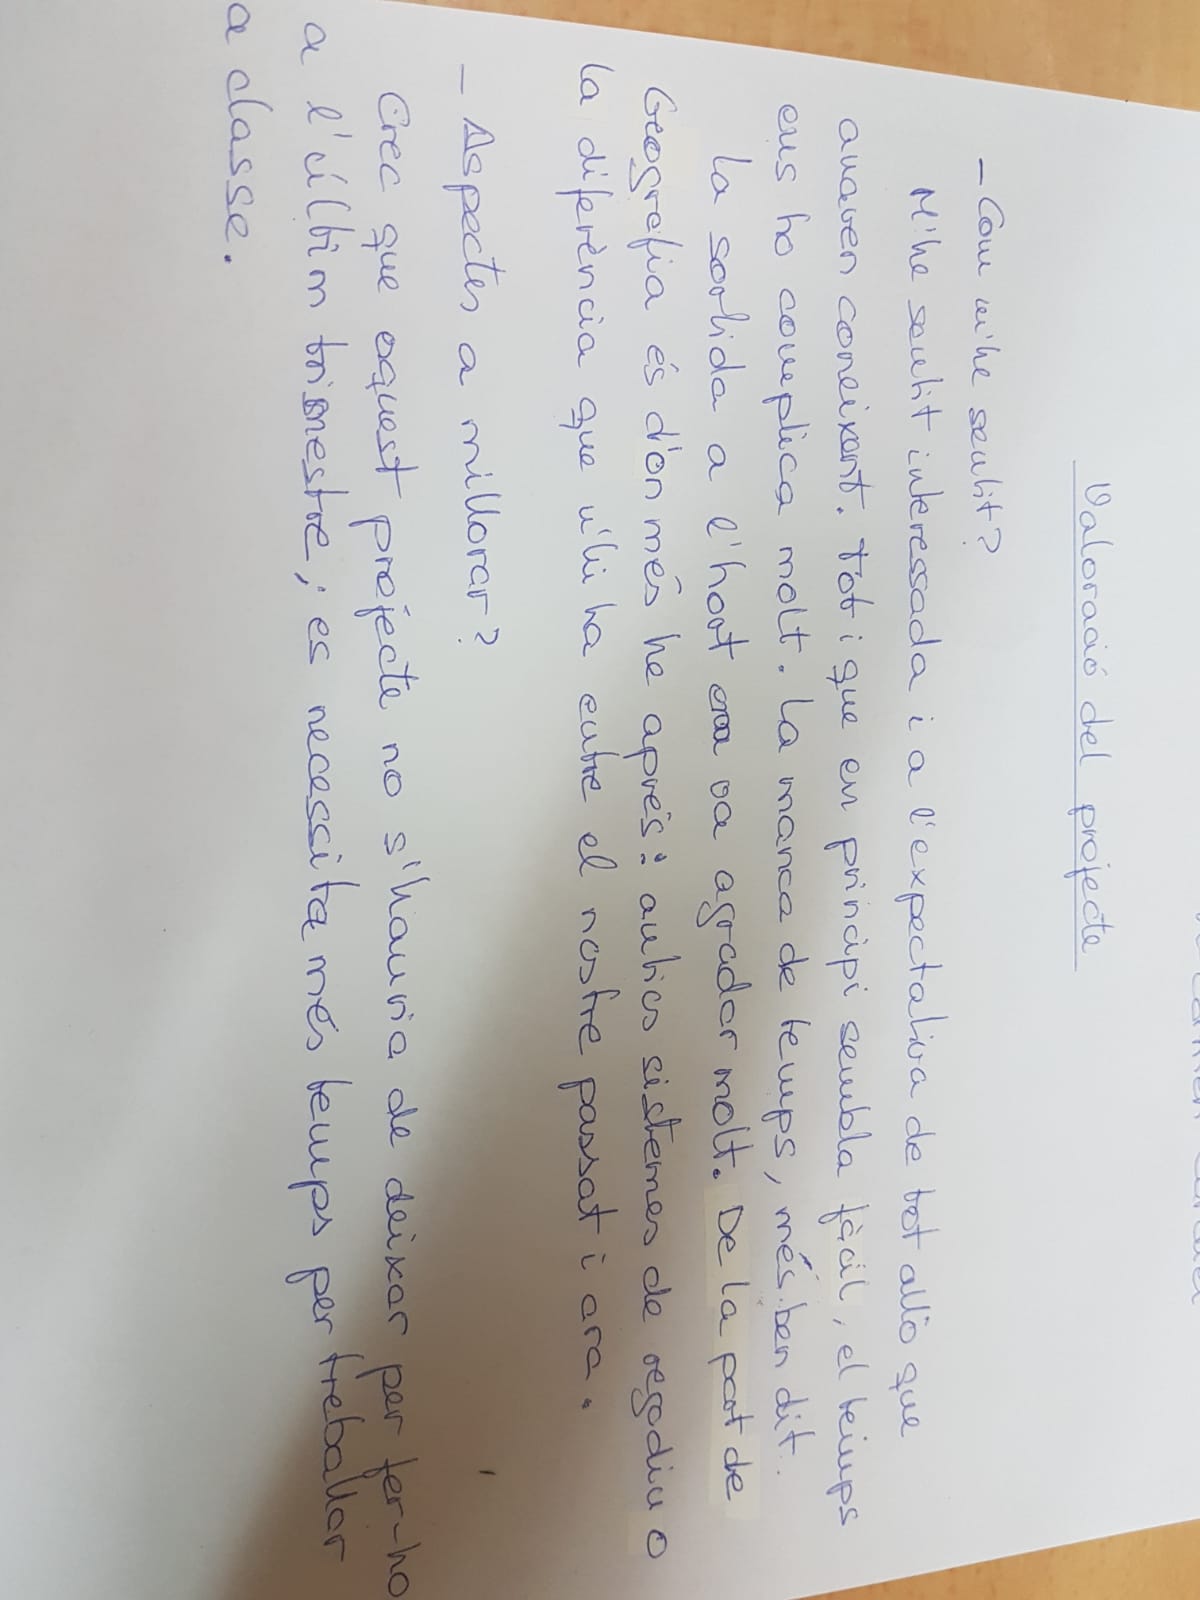 Valoració del projecte
- Com m'he sentit?
M'he sentit interessada i a l'expectativa de tot allò que
anaven coneixent. Tot i que en principi sembla fàcil, el temps
ens ho complica molt. La manca de temps, més ben dit.
La sortida a l'hort va agradar molt. De la part de
Geografia és d'on més he après: antics sistemes de regadiu o
la diferència que n'hi ha entre el nostre passat i ara.
- Aspectes a millorar?
Crec que aquest projecte no s'hauria de deixar per fer-ho
a l'últim trimestre; es necessita més temps per treballar
a classe.